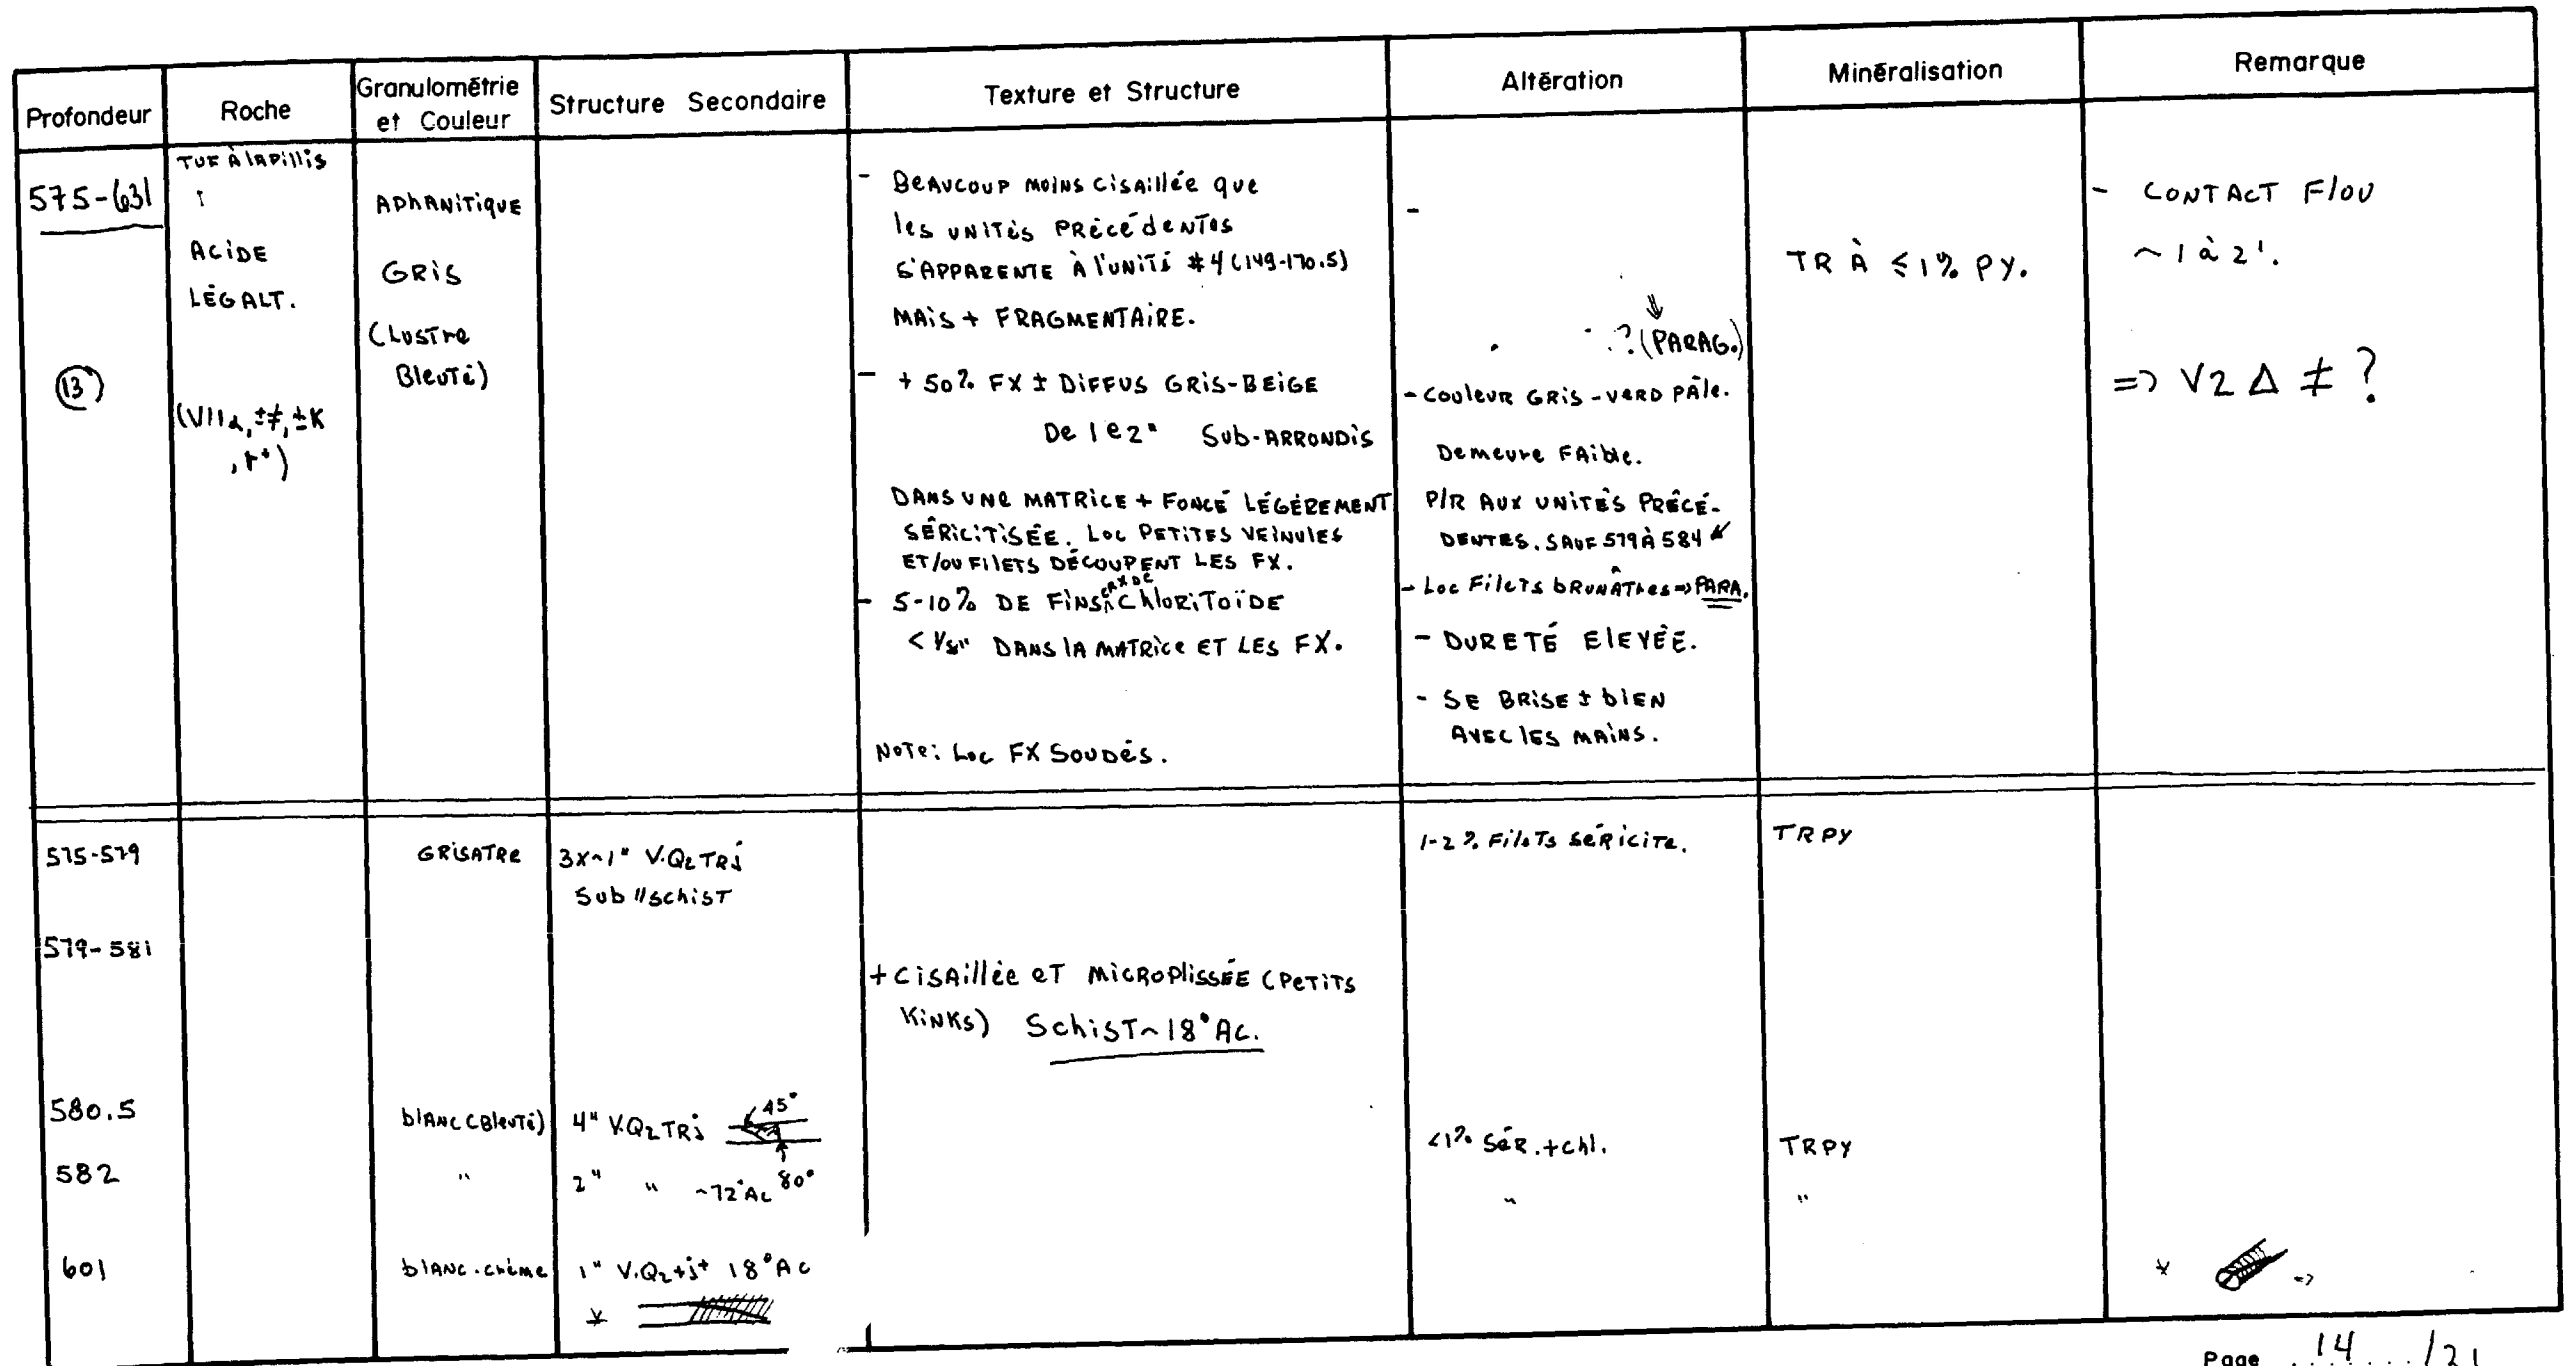 Profondeur
Roche
Granulométrie
et Couleur
Structure Secondaire
Texture et Structure
Altération
Minéralisation
Remarque
575-631
13
TUF À lAPillis
ACIDE
LÉG ALT.
APhANITIQUE
GRIS
(LUSTre
BleuTé)
- BEAUCOUP MOINS CISAILLÉE QUE
les UNITÉS PRÉCÉDENTES
S'APPARENTE À l'UNITÉ #4 (149-170.5)
MAIS + FRAGMENTAIRE.
- + 50% FX ± DIFFUS GRIS-BEIGE
De 1 @ 2" SUB-ARRONDIS
DANS UNE MATRICE + FONCÉ LÉGÉREMENT
SÉRICITISÉE. LOC PETITES VEINULES
ET/OU FILETS DÉCOUPENT LES FX.
- 5-10% DE FINS CRX DE ChloRITOÏDE
< 1/8" DANS lA MATRICE ET LES FX.
NOTE: Loc FX SOUDÉS.
-
? (PARAG.)
- COULEUR GRIS-VERD PÂle.
Demeure FAible.
P/R AUX UNITÉS PRÉCÉ-
DENTES. SAUF 579 À 584
- Loc Filets bRUNÂTres => PARA.
- DURETÉ ÉlEVÉE.
- SE BRISE ± bIEN
AVEC lES MAINS.
TR À ≤1% PY.
- CONTACT FlOU
~ 1 à 2'.
=> V2 Δ ≠ ?
575-579
GRISATRe
3x~1" V.Qz TRj
Sub // schisT
1-2% FileTs SÉRICITe.
TRPY
579-581
+ CISAIllée eT MICROPlISSÉE (PeTITS
KINKS) SchisT ~18° AC.
580.5
blANC (BleuTé)
4" V.Qz TRj
45°
80°
<1% SÉR. + chl.
TRPY
582
"
2" " ~72° Ac
"
"
601
blANC-crème
1" V.Qz+j+ 18° Ac
*
* =>
Page 14 /21